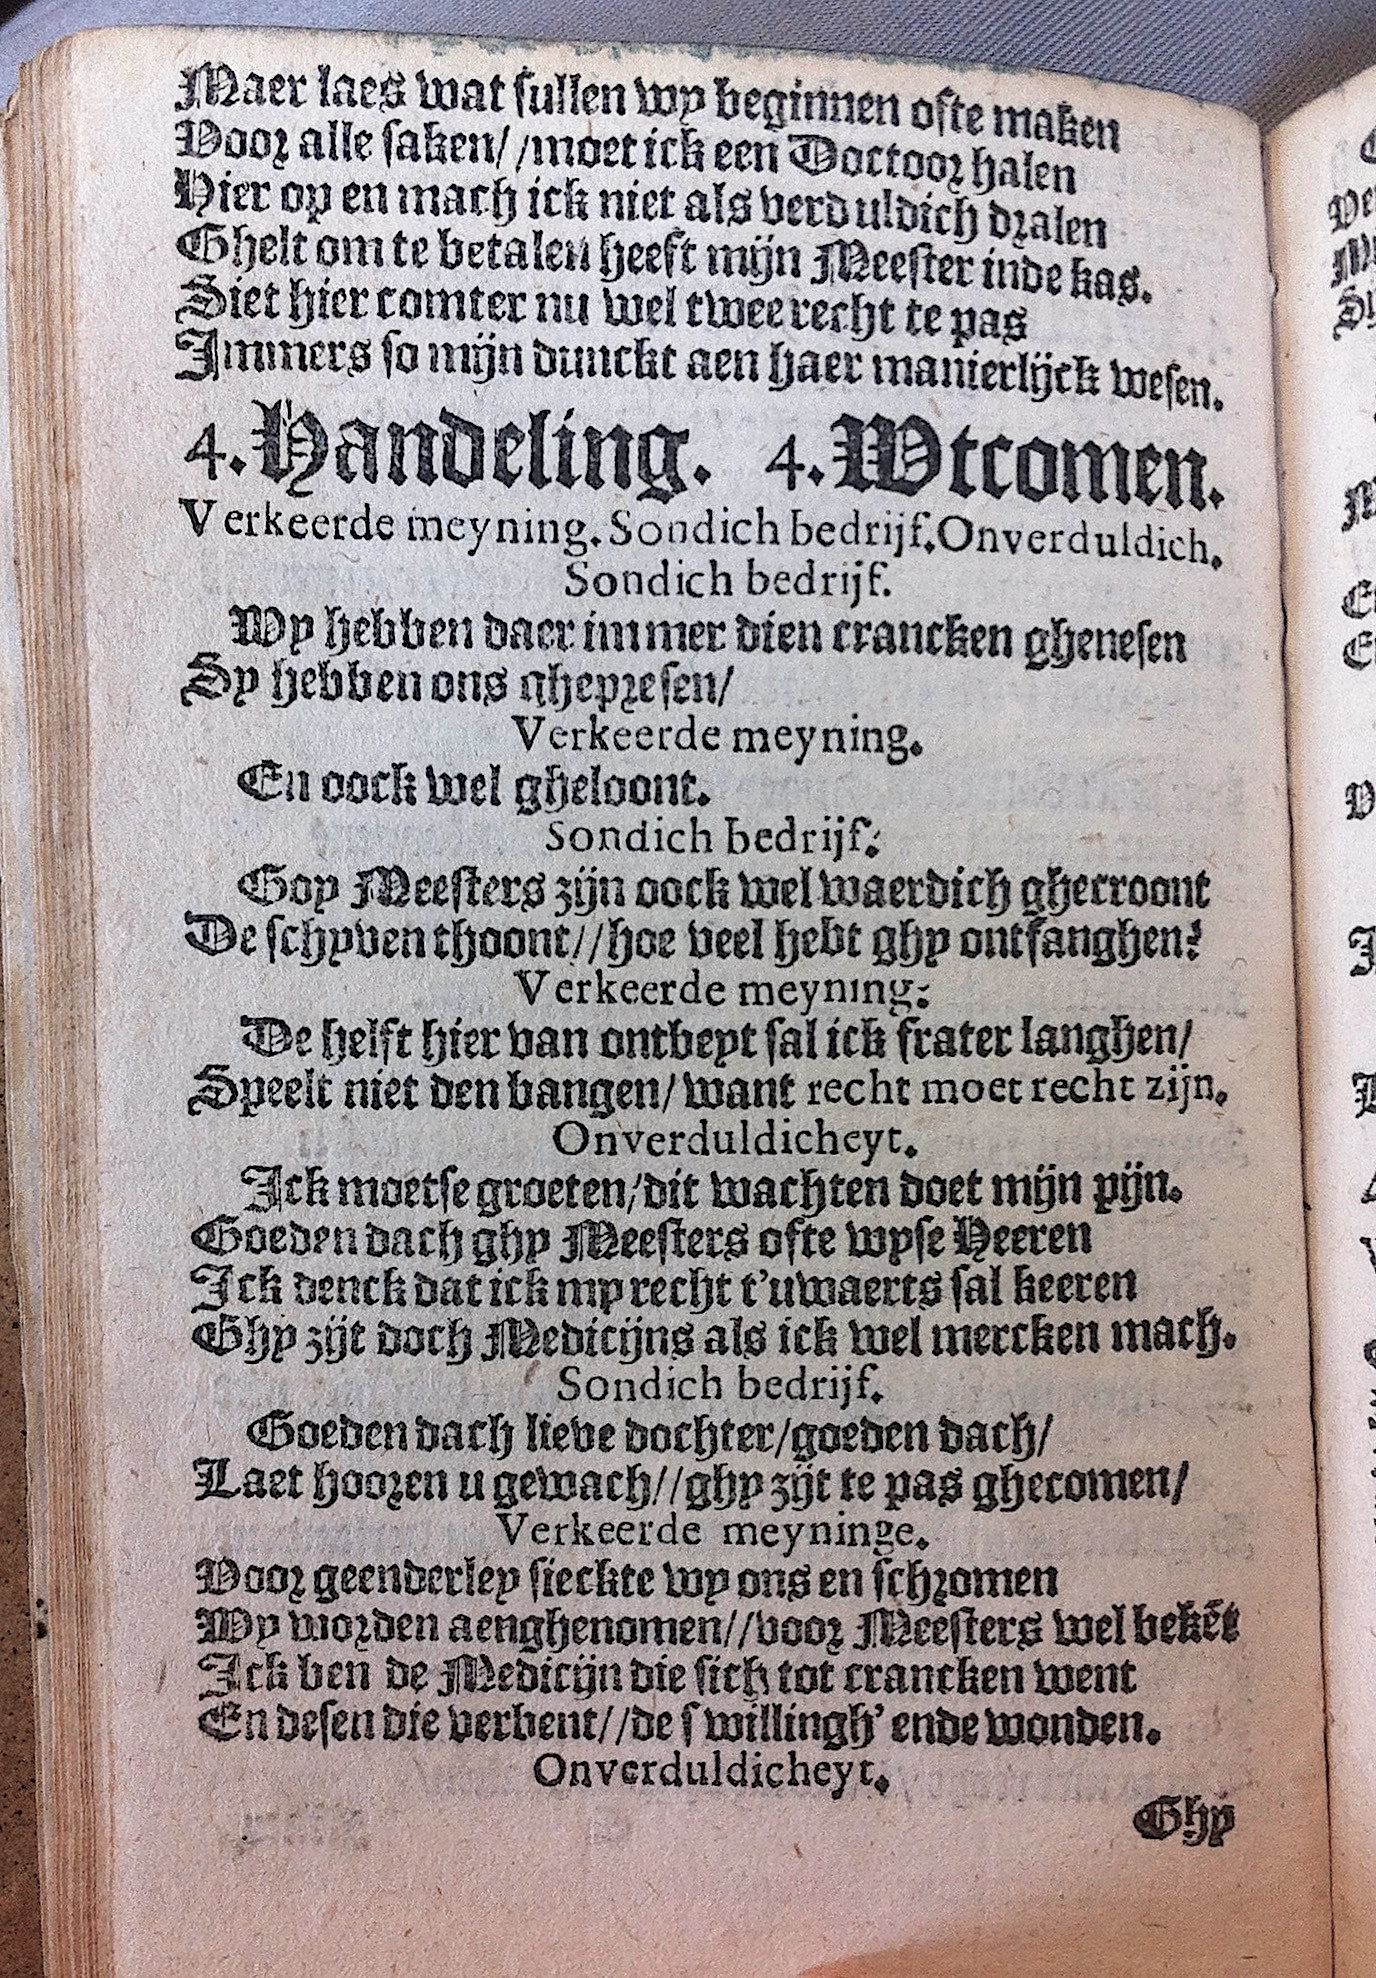 Maer laes wat sullen wy beginnen ofte maken
Voor alle saken//moet ick een Doctoor halen
Hier op en mach ick niet als verduldich dralen
Ghelt om te betalen heeft mijn Meester inde kas.
Siet hier comter nu wel twee recht te pas
Immers so mijn dunckt aen haer manierlijck wesen.
4. Handeling. 4. Wtcomen.
Verkeerde meyning. Sondich bedrijf. Onverduldich.
Sondich bedrijf.
Wy hebben daer immer dien crancken ghenesen
Sy hebben ons ghepresen/
Verkeerde meyning.
En oock wel gheloont.
Sondich bedrijf:
Goy Meesters zijn oock wel waerdich ghecroont
De schyven thoont//hoe veel hebt ghy ontfanghen?
Verkeerde meyning:
De helft hier van ontbeyt sal ick frater langhen/
Speelt niet den bangen/want recht moet recht zijn.
Onverduldicheyt.
Ick moetse groeten/dit wachten doet mijn pijn.
Goeden dach ghy Meesters ofte wyse Heeren
Ick denck dat ick my recht t'uwaerts sal keeren
Ghy zijt doch Medicijns als ick wel mercken mach.
Sondich bedrijf.
Goeden dach lieve dochter/goeden dach/
Laet hooren u gewach//ghy zijt te pas ghecomen/
Verkeerde meyninge.
Voor geenderley sieckte wy ons en schromen
Wy worden aenghenomen//voor Meesters wel bekēt
Ick ben de Medicijn die sich tot crancken went
En desen die verbent//de swillingh' ende wonden.
Onverduldicheyt.
Ghy